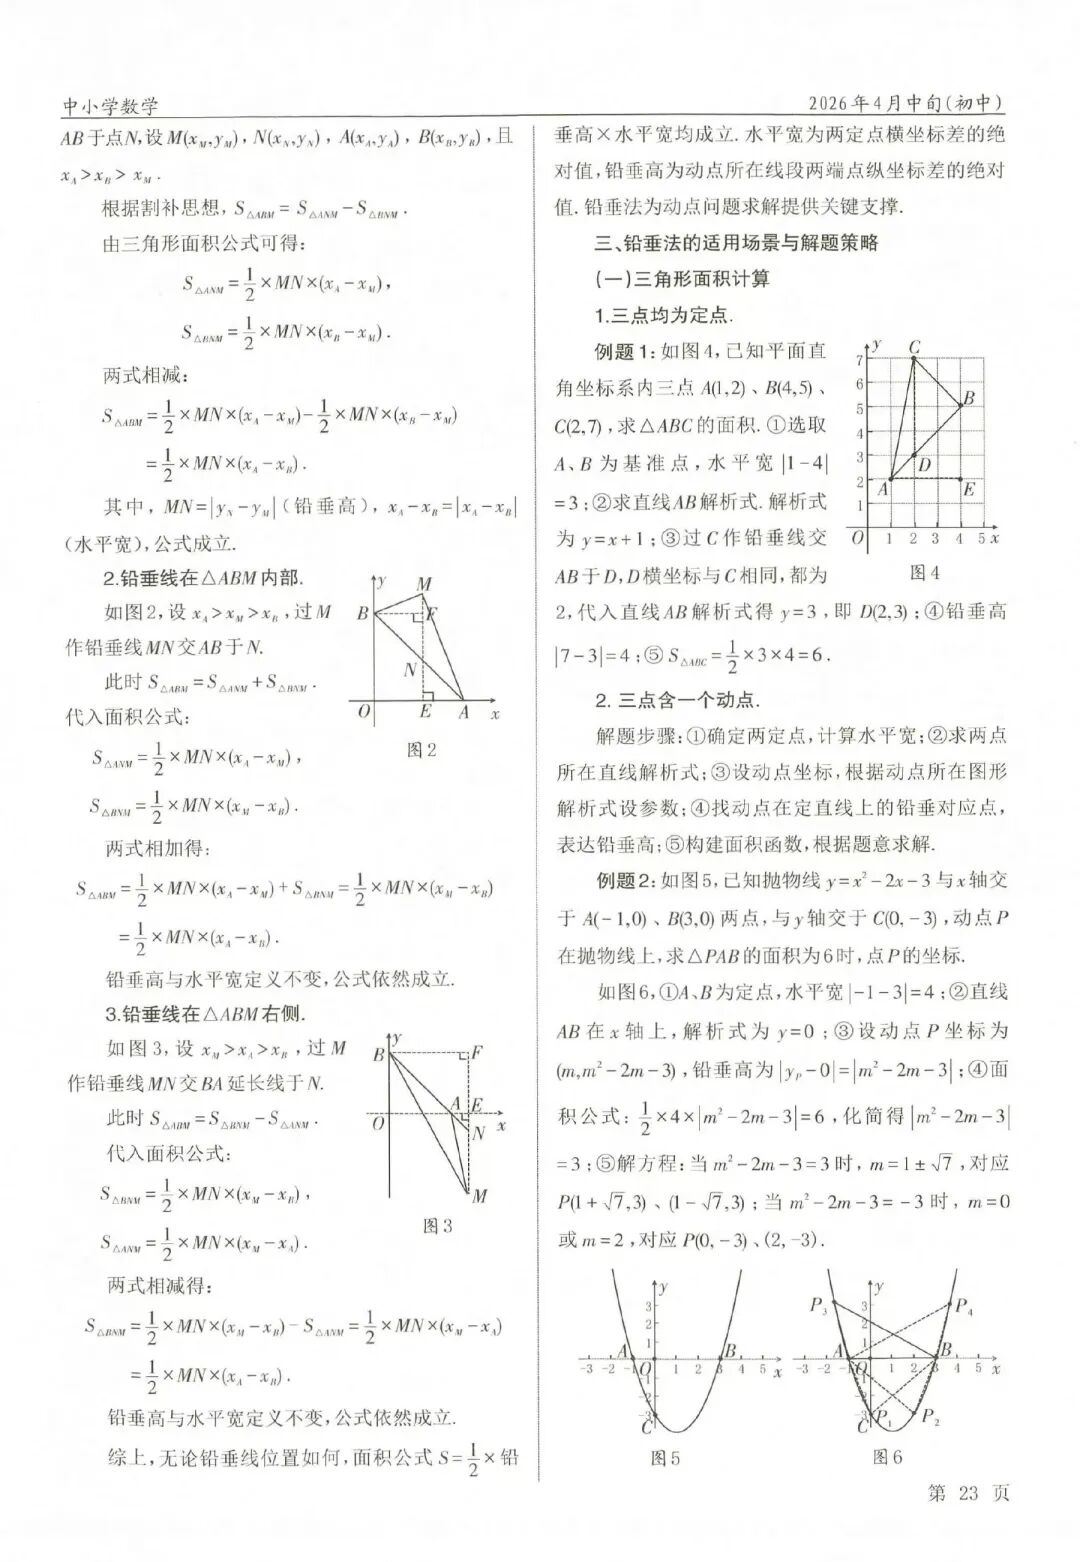 中小学数学
2026年4月中旬(初中)
AB于点N,设M(x_M,y_M),N(x_N,y_N),A(x_A,y_A),B(x_B,y_B),且
x_A>x_B>x_M.
根据割补思想,S_△ABM=S_△ANM-S_△BNM.
由三角形面积公式可得:
S_△ANM=1/2×MN×(x_A-x_M),
S_△BNM=1/2×MN×(x_B-x_M).
两式相减:
S_△ABM=1/2×MN×(x_A-x_M)-1/2×MN×(x_B-x_M)
=1/2×MN×(x_A-x_B).
其中,MN=|y_N-y_M|(铅垂高),x_A-x_B=|x_A-x_B|
(水平宽),公式成立.
2.铅垂线在△ABM内部.
如图2,设x_A>x_M>x_B,过M
作铅垂线MN交AB于N.
此时S_△ABM=S_△ANM+S_△BNM.
代入面积公式:
S_△ANM=1/2×MN×(x_A-x_M),
S_△BNM=1/2×MN×(x_M-x_B).
y M B F N O E A x
图2
两式相加得:
S_△ABM=1/2×MN×(x_A-x_M)+S_△BNM=1/2×MN×(x_M-x_B)
=1/2×MN×(x_A-x_B).
铅垂高与水平宽定义不变,公式依然成立.
3.铅垂线在△ABM右侧.
如图3,设x_M>x_A>x_B,过M
作铅垂线MN交BA延长线于N.
此时S_△ABM=S_△BNM-S_△ANM.
代入面积公式:
S_△BNM=1/2×MN×(x_M-x_B),
S_△ANM=1/2×MN×(x_M-x_A).
y B F A E O N x M
图3
两式相减得:
S_△BNM=1/2×MN×(x_M-x_B)-S_△ANM=1/2×MN×(x_M-x_A)
=1/2×MN×(x_A-x_B).
铅垂高与水平宽定义不变,公式依然成立.
综上,无论铅垂线位置如何,面积公式S=1/2×铅
垂高×水平宽均成立.水平宽为两定点横坐标差的绝
对值,铅垂高为动点所在线段两端点纵坐标差的绝对
值.铅垂法为动点问题求解提供关键支撑.
三、铅垂法的适用场景与解题策略
(一)三角形面积计算
1.三点均为定点.
例题1:如图4,已知平面直
角坐标系内三点A(1,2)、B(4,5)、
C(2,7),求△ABC的面积.①选取
A、B为基准点,水平宽|1-4|
=3;②求直线AB解析式.解析式
为y=x+1;③过C作铅垂线交
AB于D,D横坐标与C相同,都为
y C 7 6 B 5 4 3 D 2 A E 1 O 1 2 3 4 5 x
图4
2,代入直线AB解析式得y=3,即D(2,3);④铅垂高
|7-3|=4;⑤S_△ABC=1/2×3×4=6.
2. 三点含一个动点.
解题步骤:①确定两定点,计算水平宽;②求两点
所在直线解析式;③设动点坐标,根据动点所在图形
解析式设参数;④找动点在定直线上的铅垂对应点,
表达铅垂高;⑤构建面积函数,根据题意求解.
例题2:如图5,已知抛物线y=x²-2x-3与x轴交
于A(-1,0)、B(3,0)两点,与y轴交于C(0,-3),动点P
在抛物线上,求△PAB的面积为6时,点P的坐标.
如图6,①A、B为定点,水平宽|-1-3|=4;②直线
AB在x轴上,解析式为y=0;③设动点P坐标为
(m,m²-2m-3),铅垂高为|y_P-0|=|m²-2m-3|;④面
积公式:1/2×4×|m²-2m-3|=6,化简得|m²-2m-3|
=3;⑤解方程:当m²-2m-3=3时,m=1±√7,对应
P(1+√7,3)、(1-√7,3);当m²-2m-3=-3时,m=0
或m=2,对应P(0,-3)、(2,-3).
y 3 2 1 A B -3 -2 -1 O 1 2 3 4 5 x -1 -2 -3 C
图5
y P₃ 3 P₄ 2 1 A B -3 -2 O 2 4 5 x C P₁ P₂
图6
第 23 页